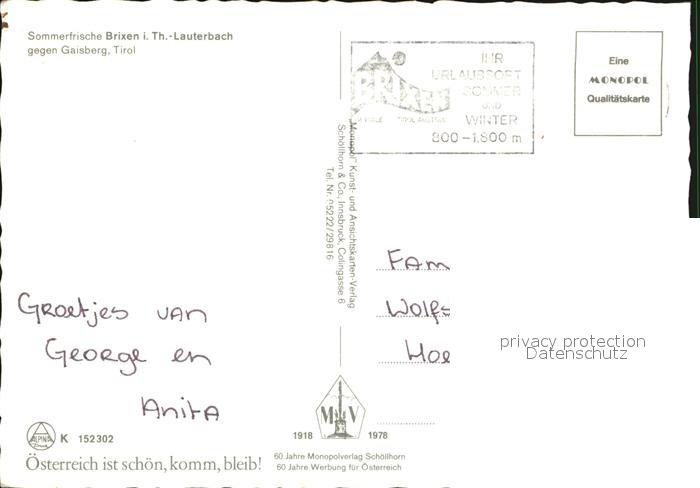 Sommerfrische Brixen i. Th.-Lauterbach
gegen Gaisberg, Tirol
IHR
URLAUBSORT
SOMMER
UND
WINTER
800-1.800 m
BRIXEN
Eine
MONOPOL
Qualitätskarte
"Monopol" Kunst- und Ansichtskarten-Verlag
Schöllhorn & Co., Innsbruck, Colingasse 6
Tel. Nr. 05222/29816
Groetjes van
George en
Anita
Fam
Wolfs
Hoe
privacy protection
Datenschutz
ALPINA
K 152302
1918 MV 1978
Österreich ist schön, komm, bleib!
60 Jahre Monopolverlag Schöllhorn
60 Jahre Werbung für Österreich